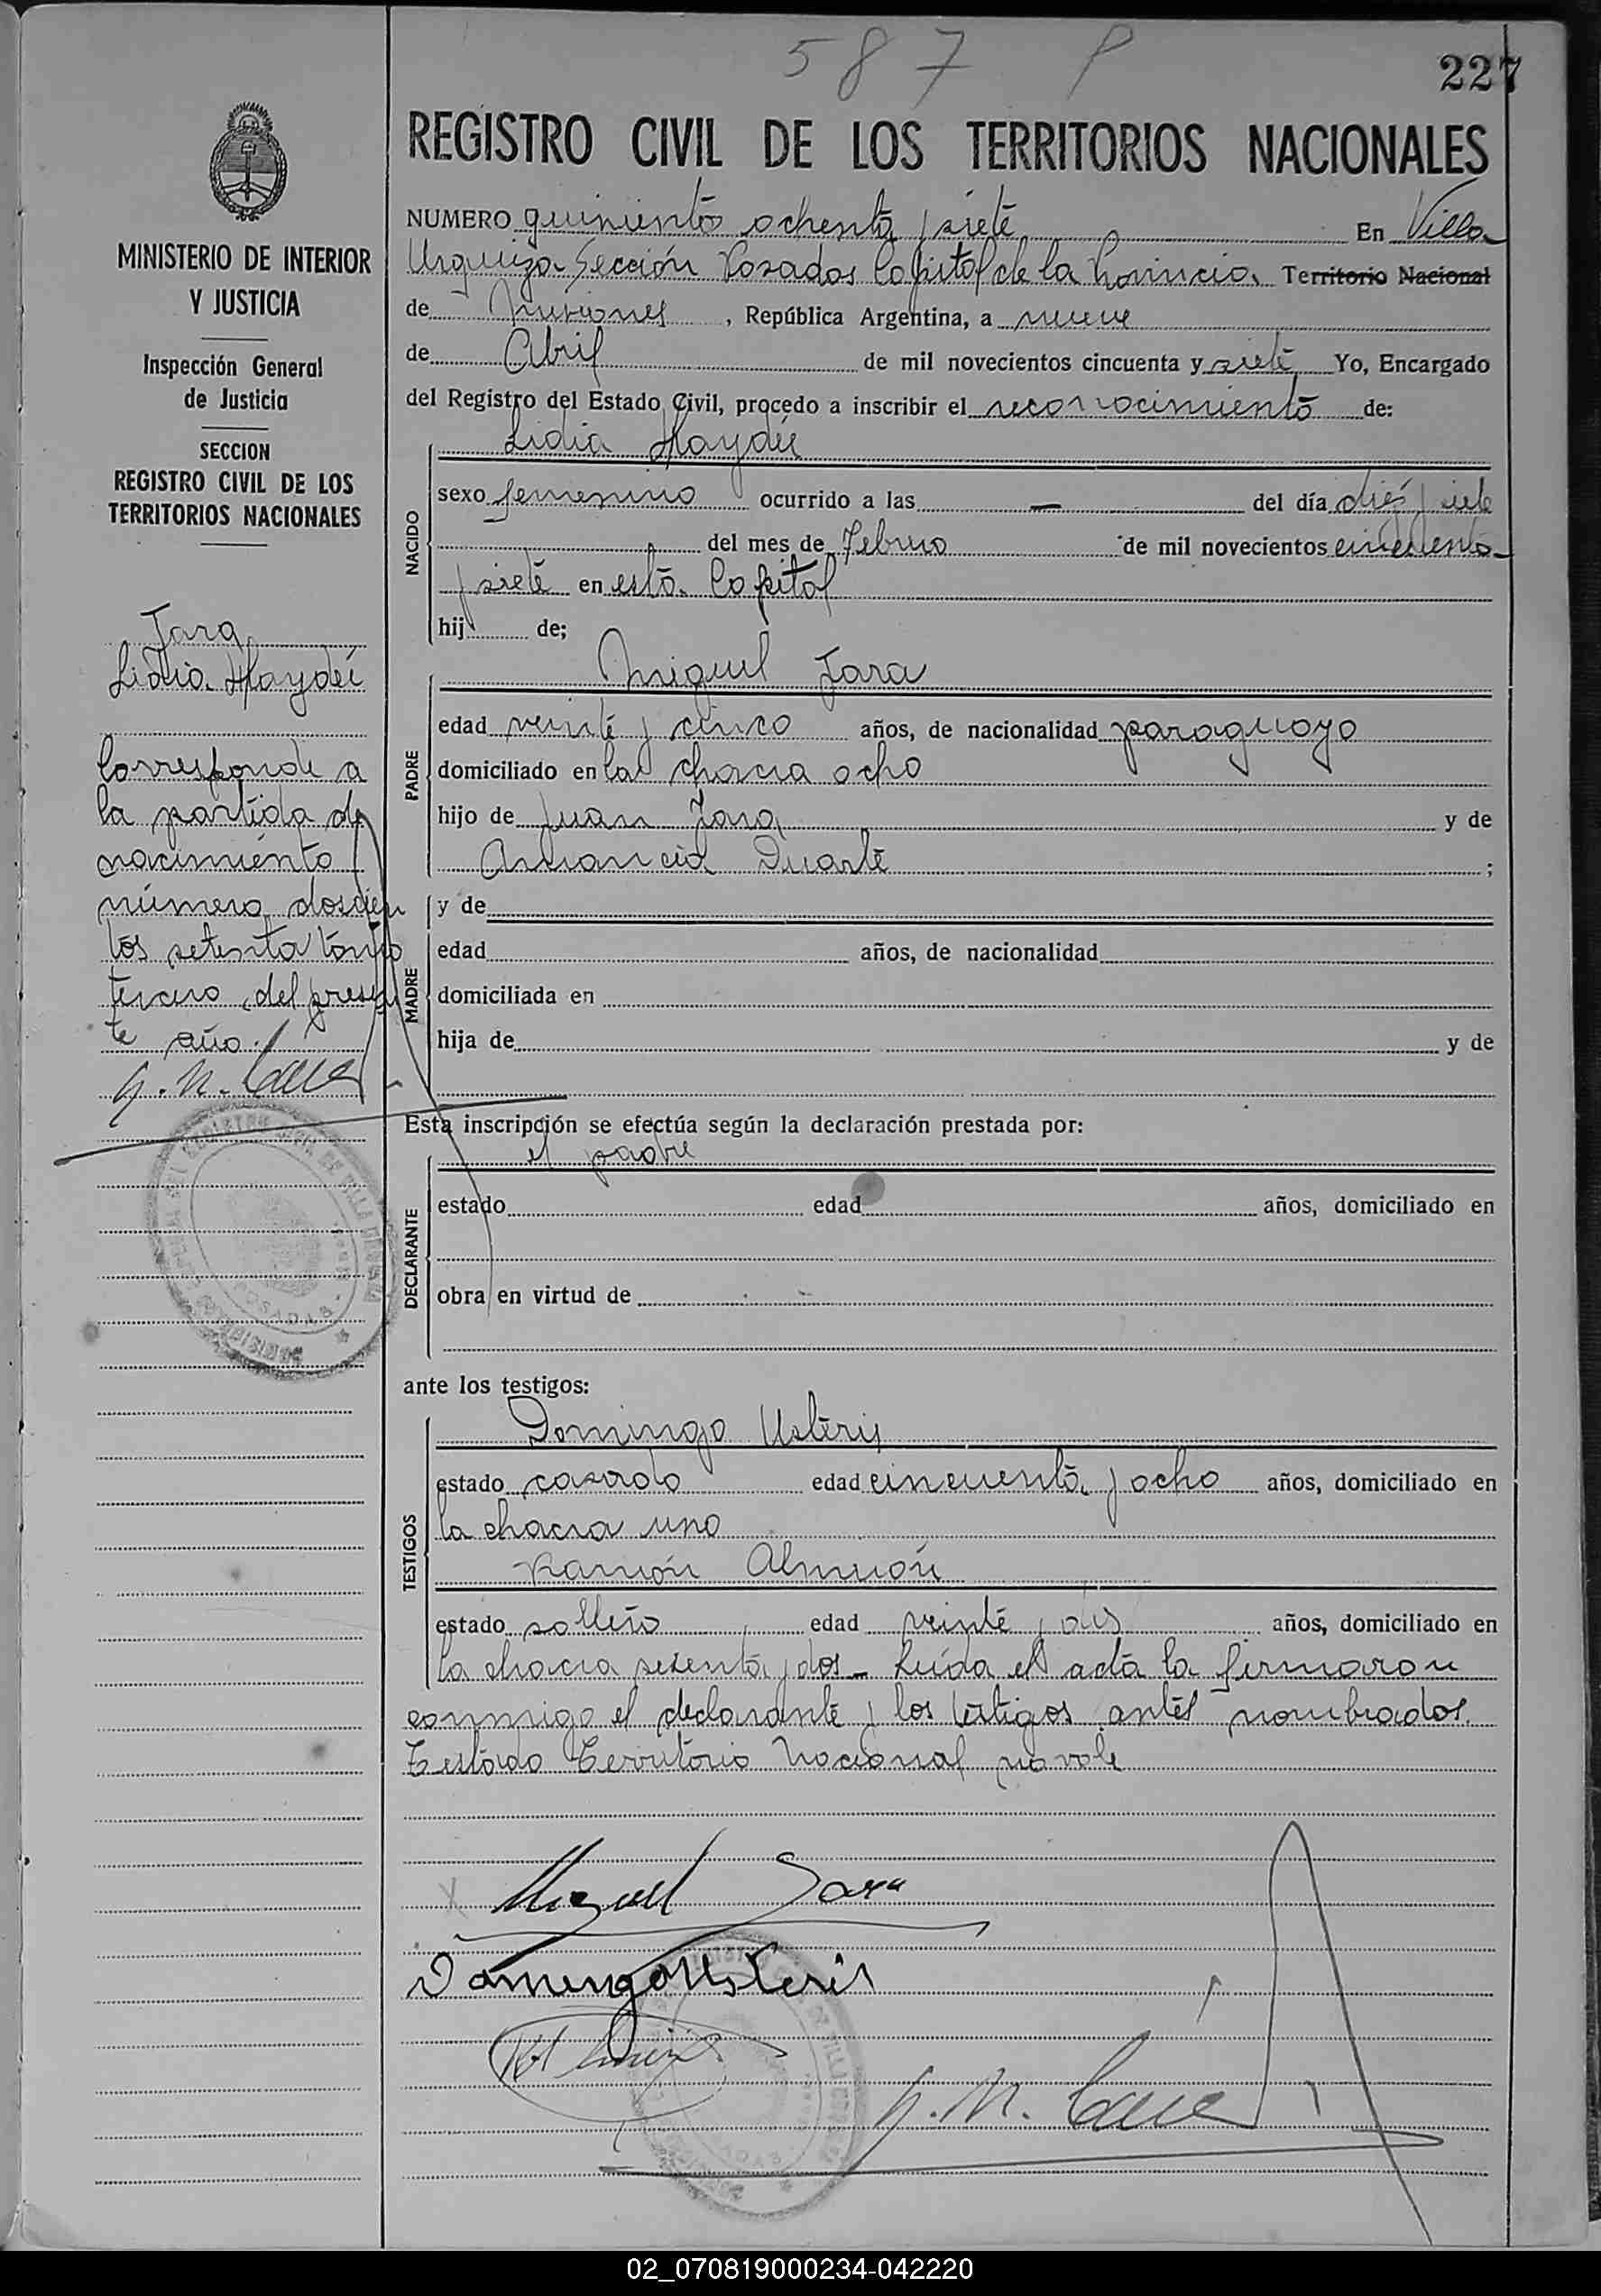 587 P
227
REGISTRO CIVIL DE LOS TERRITORIOS NACIONALES
MINISTERIO DE INTERIOR
Y JUSTICIA
Inspección General
de Justicia
SECCION
REGISTRO CIVIL DE LOS
TERRITORIOS NACIONALES
Jara
Lidia Haydée
Corresponde a
la partida de
nacimiento
número doscien
tos setenta tomo
tercero, del presen
te año.
NUMERO quinientos ochenta y siete En Villa
Urquiza Sección Posadas Capital de la Provincia Territorio Nacional
de Misiones, República Argentina, a nueve
de Abril de mil novecientos cincuenta y siete Yo, Encargado
del Registro del Estado Civil, procedo a inscribir el reconocimiento de:
Lidia Haydée
NACIDO
sexo femenino ocurrido a las — del día diez y siete
del mes de Febrero de mil novecientos cincuenta
y siete en esta Capital
hij de;
Miguel Jara
PADRE
edad veinte y cinco años, de nacionalidad paraguayo
domiciliado en la chacra ocho
hijo de Juan Jara y de
Amancia Duarte ;
MADRE
y de
edad años, de nacionalidad
domiciliada en
hija de y de
Esta inscripción se efectúa según la declaración prestada por:
el padre
DECLARANTE
estado edad años, domiciliado en
obra en virtud de
ante los testigos:
Domingo Usteris
TESTIGOS
estado casado edad cincuenta y ocho años, domiciliado en
la chacra uno
Ramón Almirón
estado soltero edad veinte y dos años, domiciliado en
la chacra setenta y dos - Leída el acta la firmaron
conmigo el declarante y los testigos antes nombrados.
Testado Territorio Nacional no vale
Miguel Jara
Domingo Usteris
02_070819000234-042220